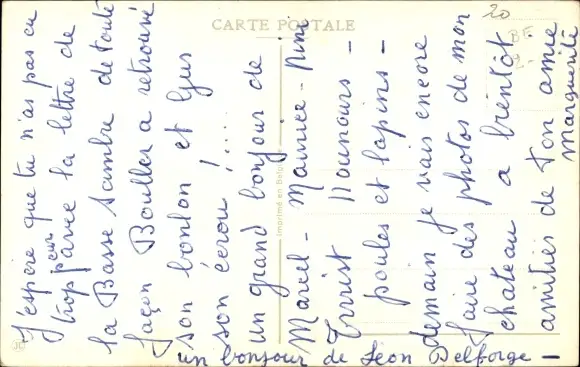 CARTE POSTALE
20
J'espère que tu n'as pas eu
trop peur pavre la lettre de
la Basse Sambre de toute
façon Boulter a retrouvé
son bonbon et Gus
son écrou !....
un grand bonjour de
Marcel - Maurice - Nini
Nounours -
poules et lapins -
demain je vais encore
faire des photos de mon
chateau a bientôt.
amitiés de ton amie
Marguerite
un bonjour de Léon Delforge -
Imprimé en Belgique